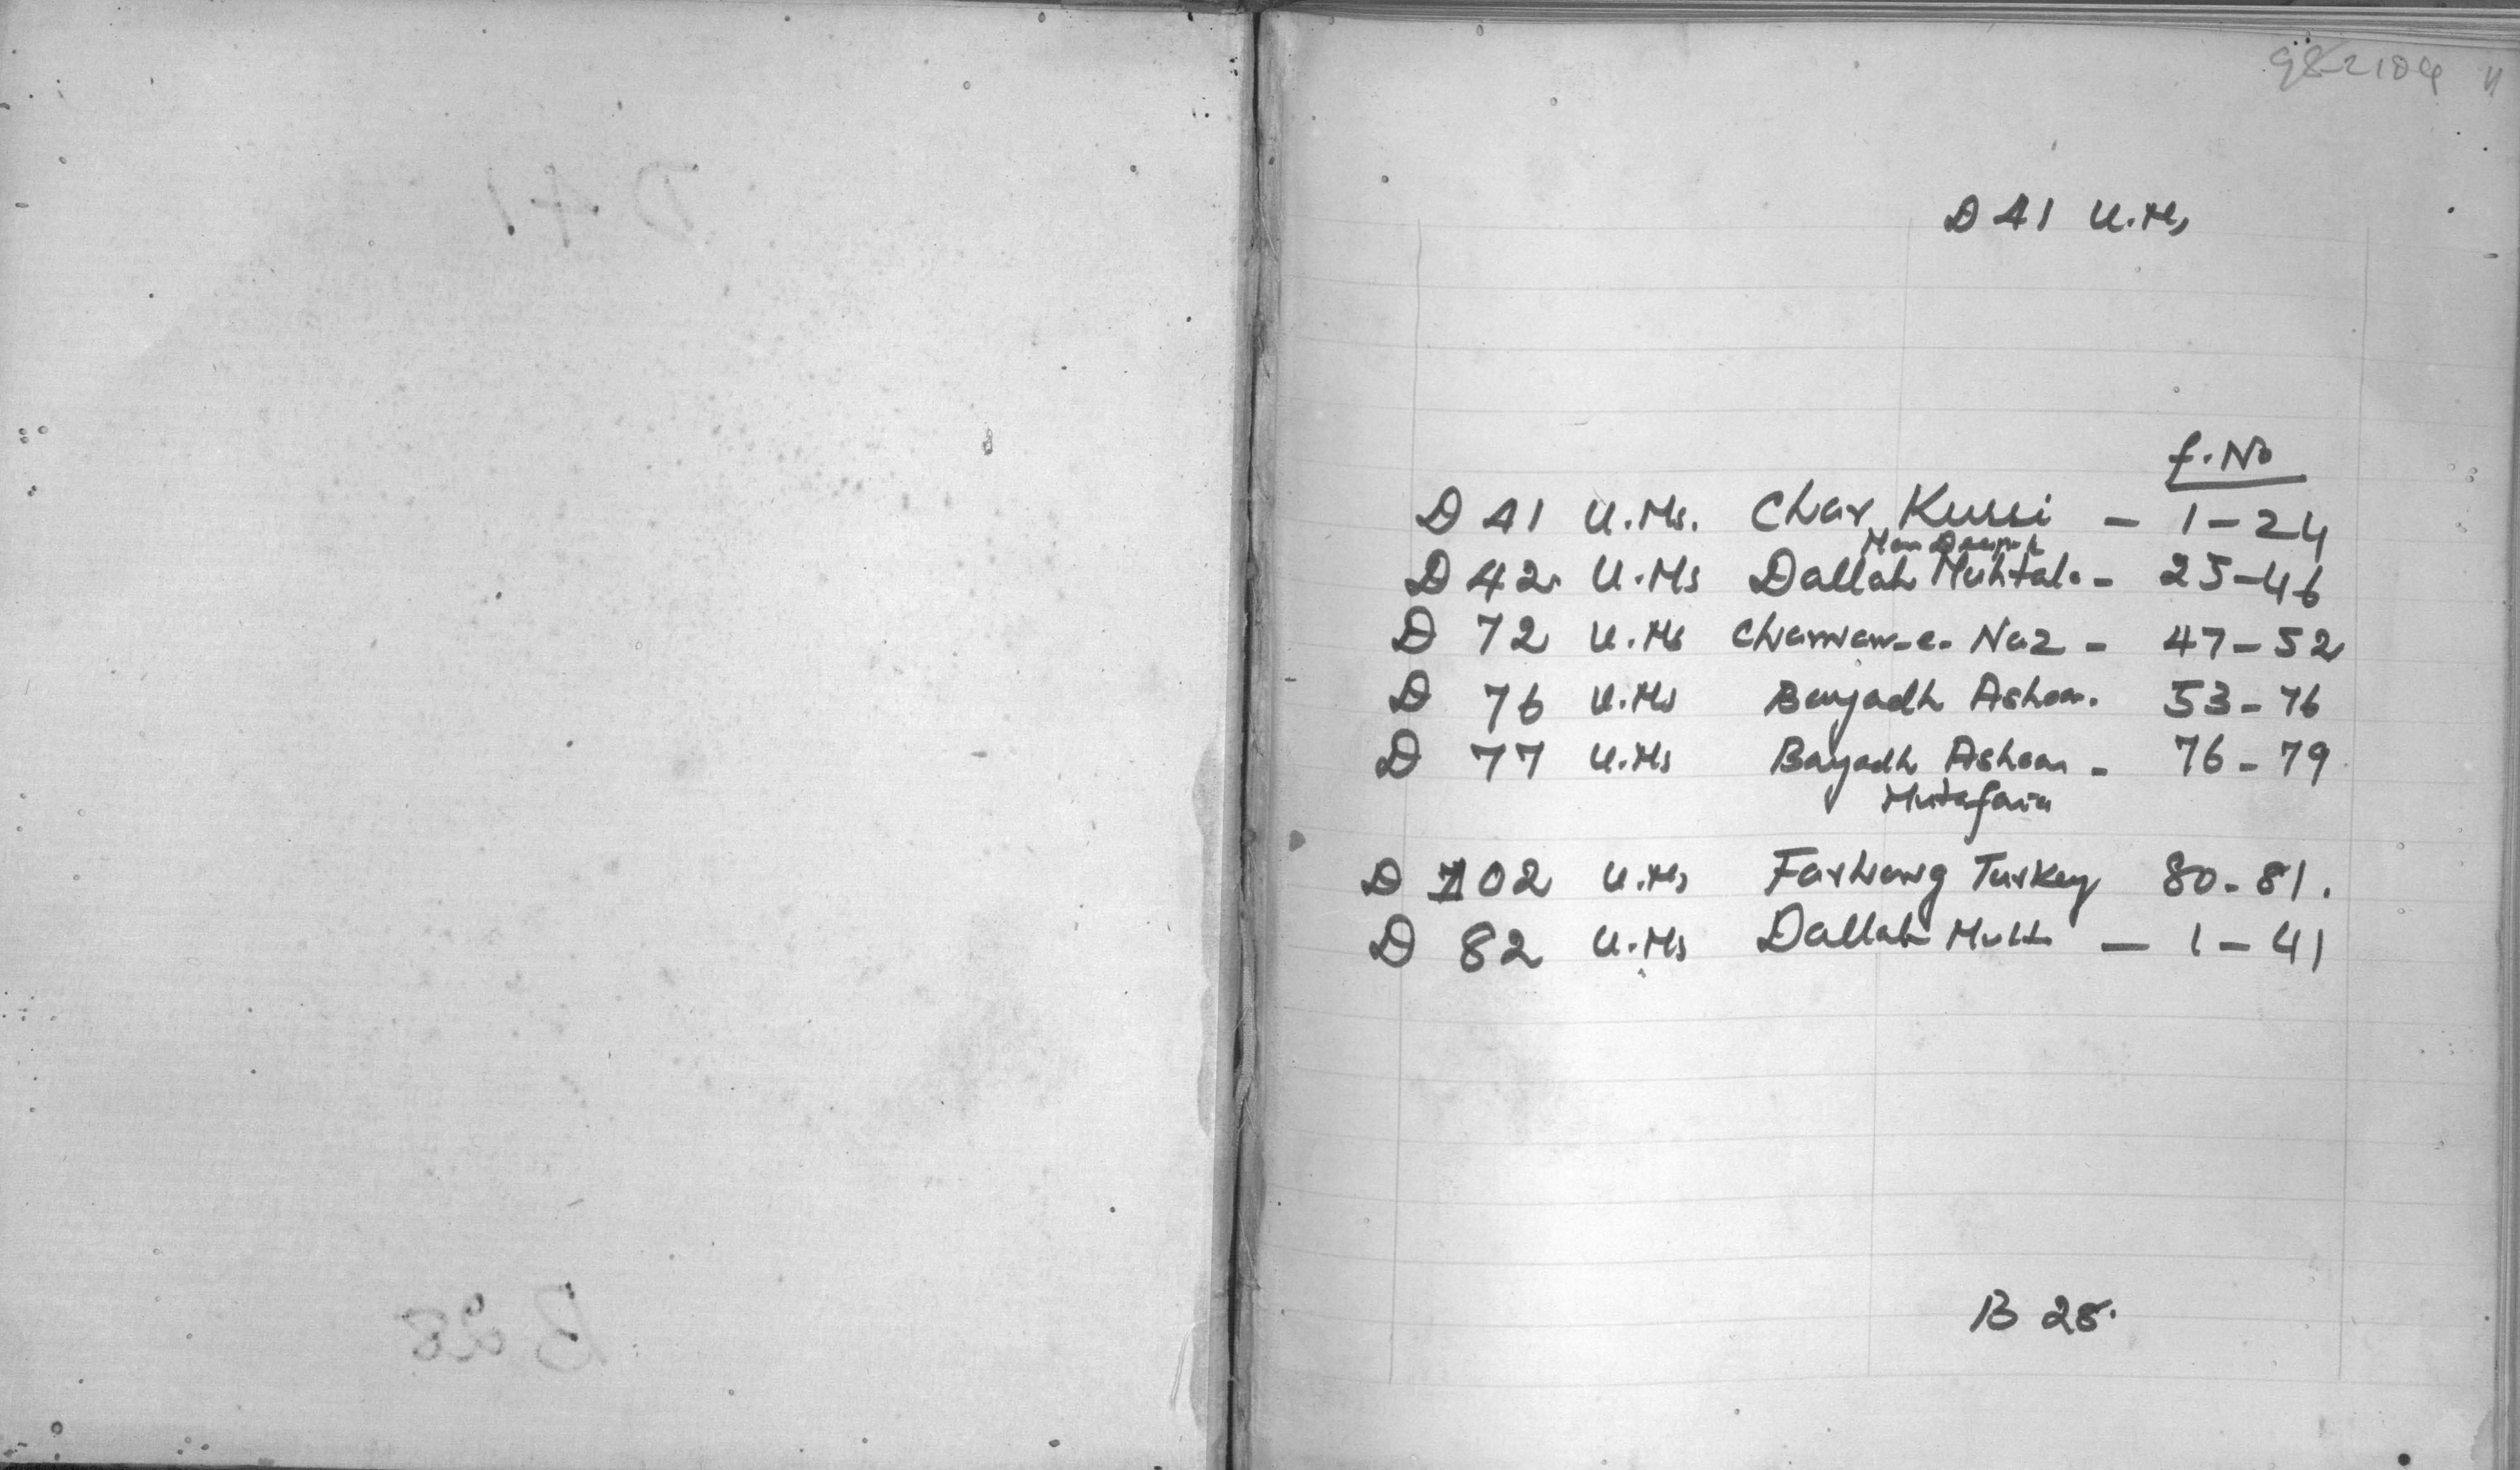 D 41 U.Ms
f. No
D 41 U.Ms. Char Kursi - 1-24
D 42. U.Ms Dallah Muhtal. - 25-46
D 72 U.Ms Chaman-e- Naz - 47-52
D 76 U.Ms Bayadh Ashaa. 53-76
D 77 U.Ms Bayadh Ashaa - 76-79
D 102 U.Ms Farhang Turkey 80-81.
D 82 U.Ms Dallah Muht - 1-41
B 28.
D 41
B 28